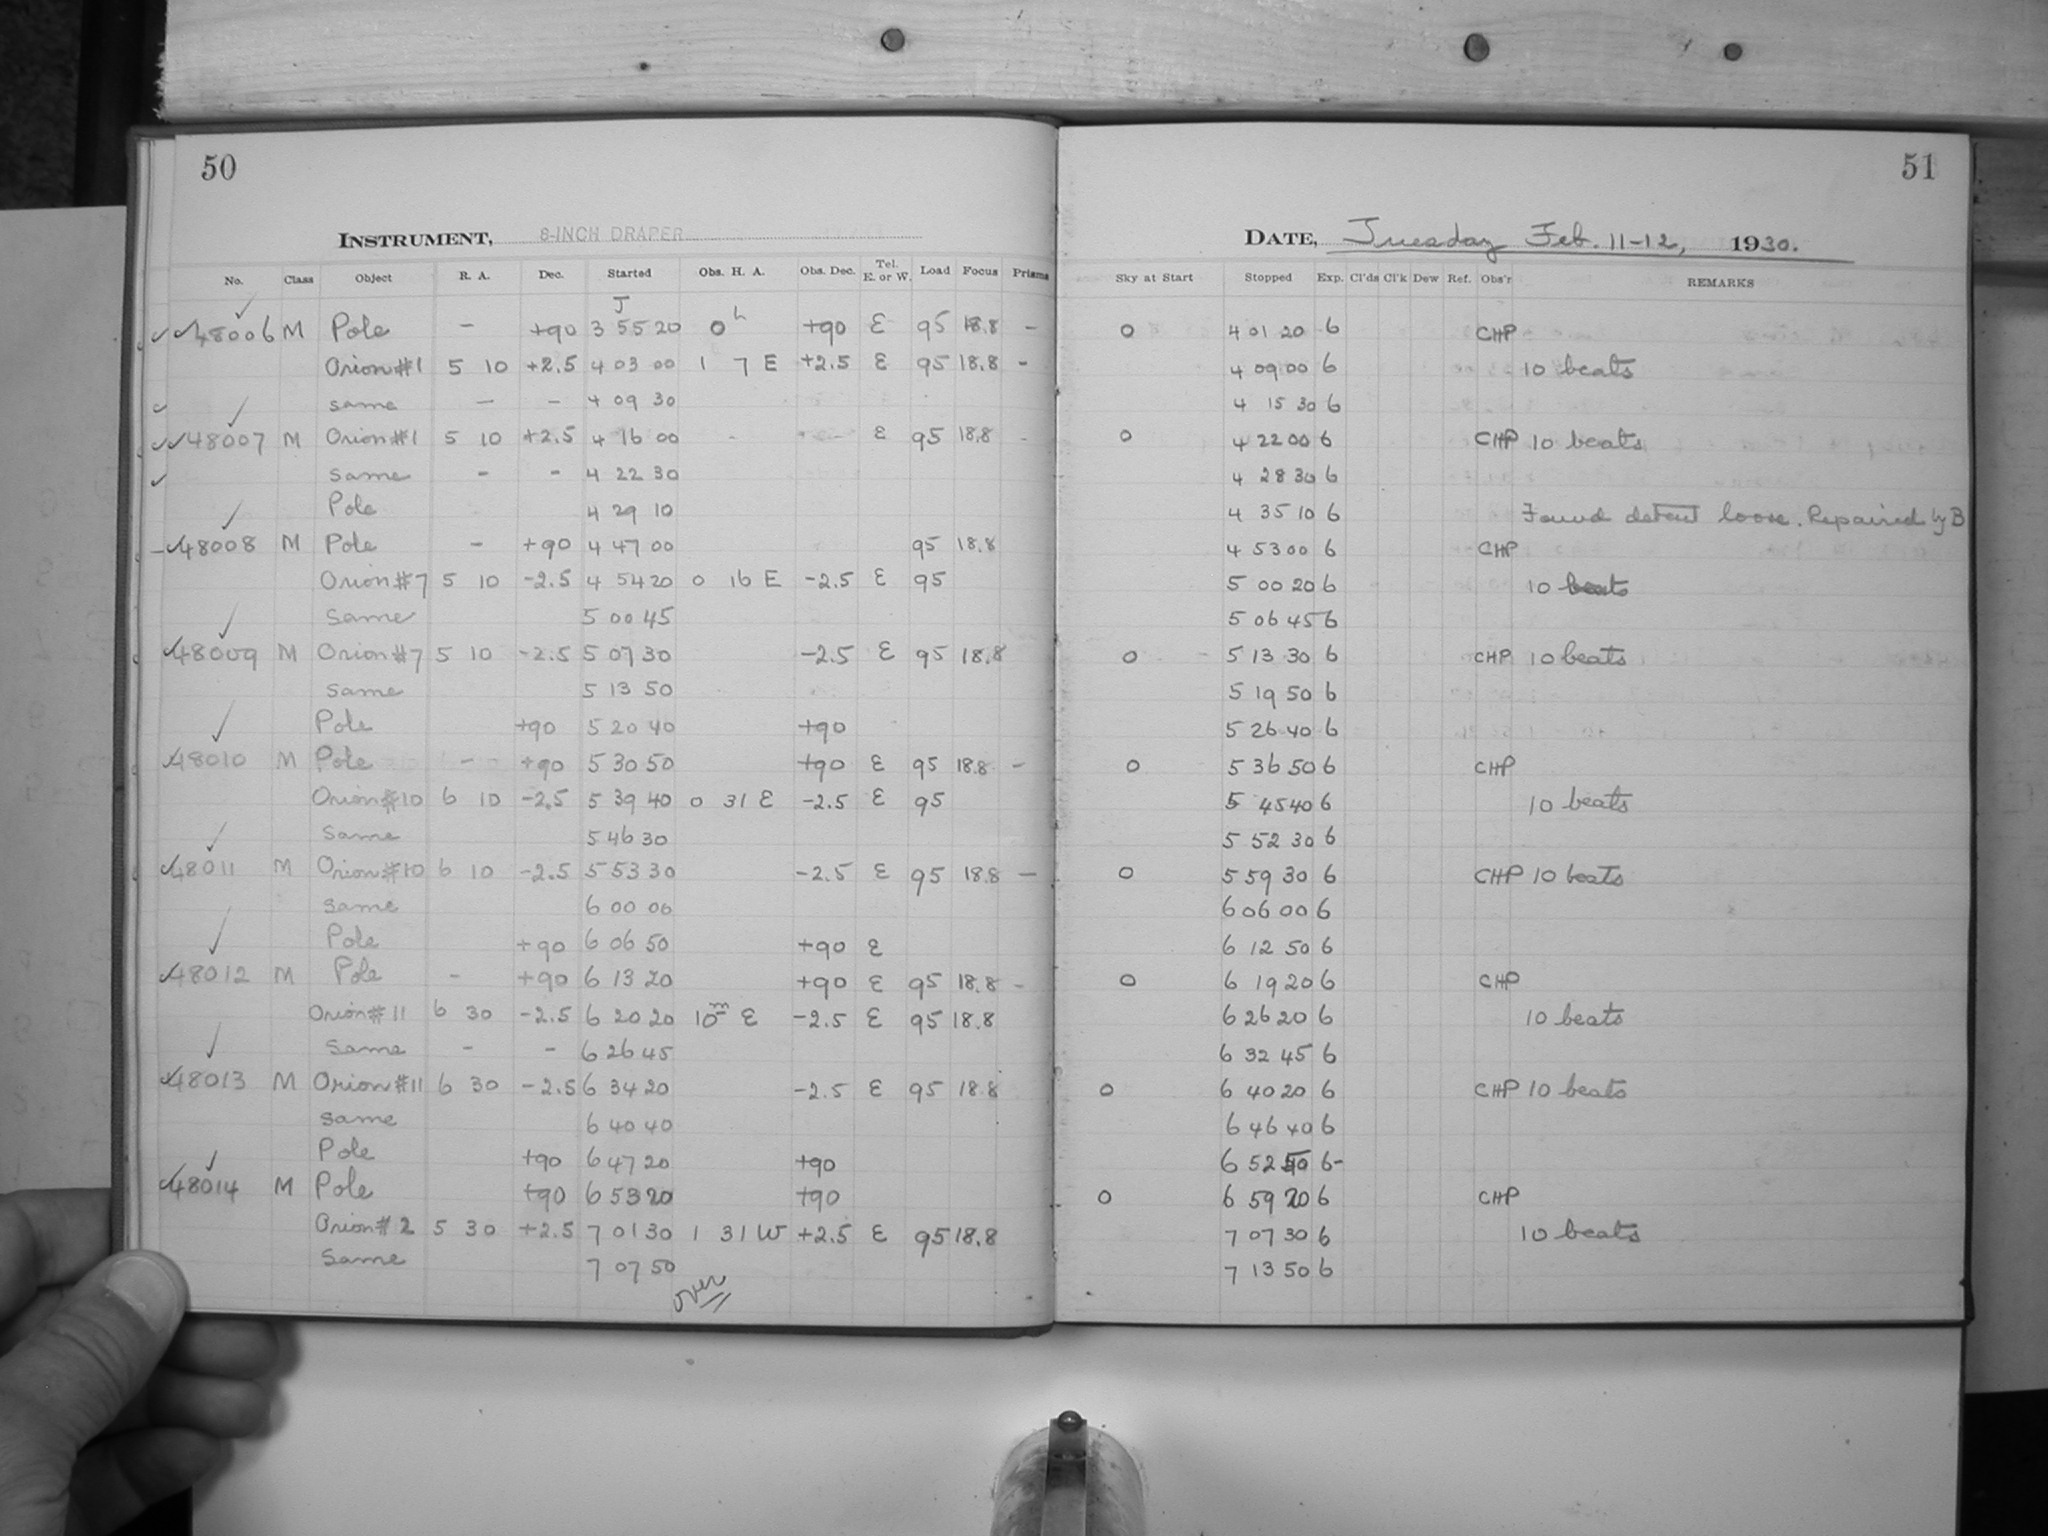 50
INSTRUMENT, 8-INCH DRAPER
No. Class Object R. A. Dec. Started Obs. H. A. Obs. Dec. Tel. E. or W. Load Focus Prisms
J
48006 M Pole - +90 3 55 20 0h +90 E 95 18.8 -
Orion #1 5 10 +2.5 4 03 00 1 7 E +2.5 E 95 18.8 -
same - - 4 09 30
48007 M Orion #1 5 10 +2.5 4 16 00 - - E 95 18.8 -
same - - 4 22 30
Pole 4 29 10
48008 M Pole - +90 4 47 00 95 18.8
Orion #7 5 10 -2.5 4 54 20 0 16 E -2.5 E 95
same 5 00 45
48009 M Orion #7 5 10 -2.5 5 07 30 -2.5 E 95 18.8
same 5 13 50
Pole +90 5 20 40 +90
48010 M Pole - +90 5 30 50 +90 E 95 18.8 -
Orion #10 6 10 -2.5 5 39 40 0 31 E -2.5 E 95
same 5 46 30
48011 M Orion #10 6 10 -2.5 5 53 30 -2.5 E 95 18.8 -
same 6 00 00
Pole +90 6 06 50 +90 E
48012 M Pole - +90 6 13 20 +90 E 95 18.8 -
Orion #11 6 30 -2.5 6 20 20 10m E -2.5 E 95 18.8
same - - 6 26 45
48013 M Orion #11 6 30 -2.5 6 34 20 -2.5 E 95 18.8
same 6 40 40
Pole +90 6 47 20 +90
48014 M Pole +90 6 53 20 +90
Orion #2 5 30 +2.5 7 01 30 1 31 W +2.5 E 95 18.8
same 7 07 50
over
51
DATE, Tuesday Feb. 11-12, 1930.
Sky at Start Stopped Exp. Cl'ds Cl'k Dew Ref. Obs'r REMARKS
0 4 01 20 6 CHP
4 09 00 6 10 beats
4 15 30 6
0 4 22 00 6 CHP 10 beats
4 28 30 6
4 35 10 6 Found detent loose. Repaired by B
4 53 00 6 CHP
5 00 20 6 10 beats
5 06 45 6
0 5 13 30 6 CHP 10 beats
5 19 50 6
5 26 40 6
0 5 36 50 6 CHP
5 45 40 6 10 beats
5 52 30 6
0 5 59 30 6 CHP 10 beats
6 06 00 6
6 12 50 6
0 6 19 20 6 CHP
6 26 20 6 10 beats
6 32 45 6
0 6 40 20 6 CHP 10 beats
6 46 40 6
6 52 50 6-
0 6 59 20 6 CHP
7 07 30 6 10 beats
7 13 50 6